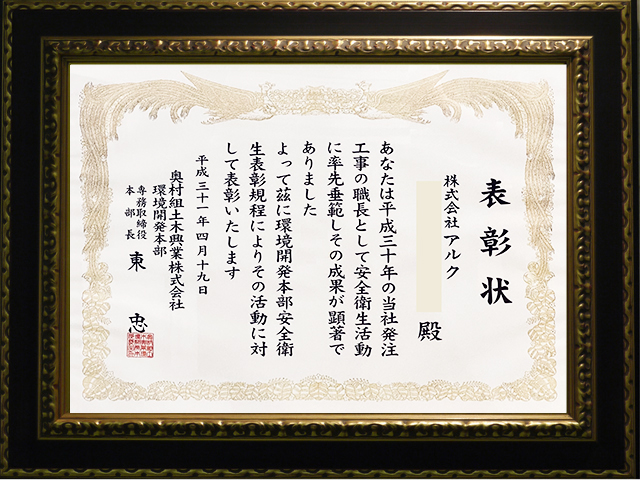 表彰状
株式会社 アルク
殿
あなたは平成三十年の当社発注
工事の職長として安全衛生活動
に率先垂範しその成果が顕著で
ありました
よって茲に環境開発本部安全衛
生表彰規程によりその活動に対
して表彰いたします
平成三十一年四月十九日
奥村組土木興業株式会社
環境開発本部
専務取締役
本部長
東 忠